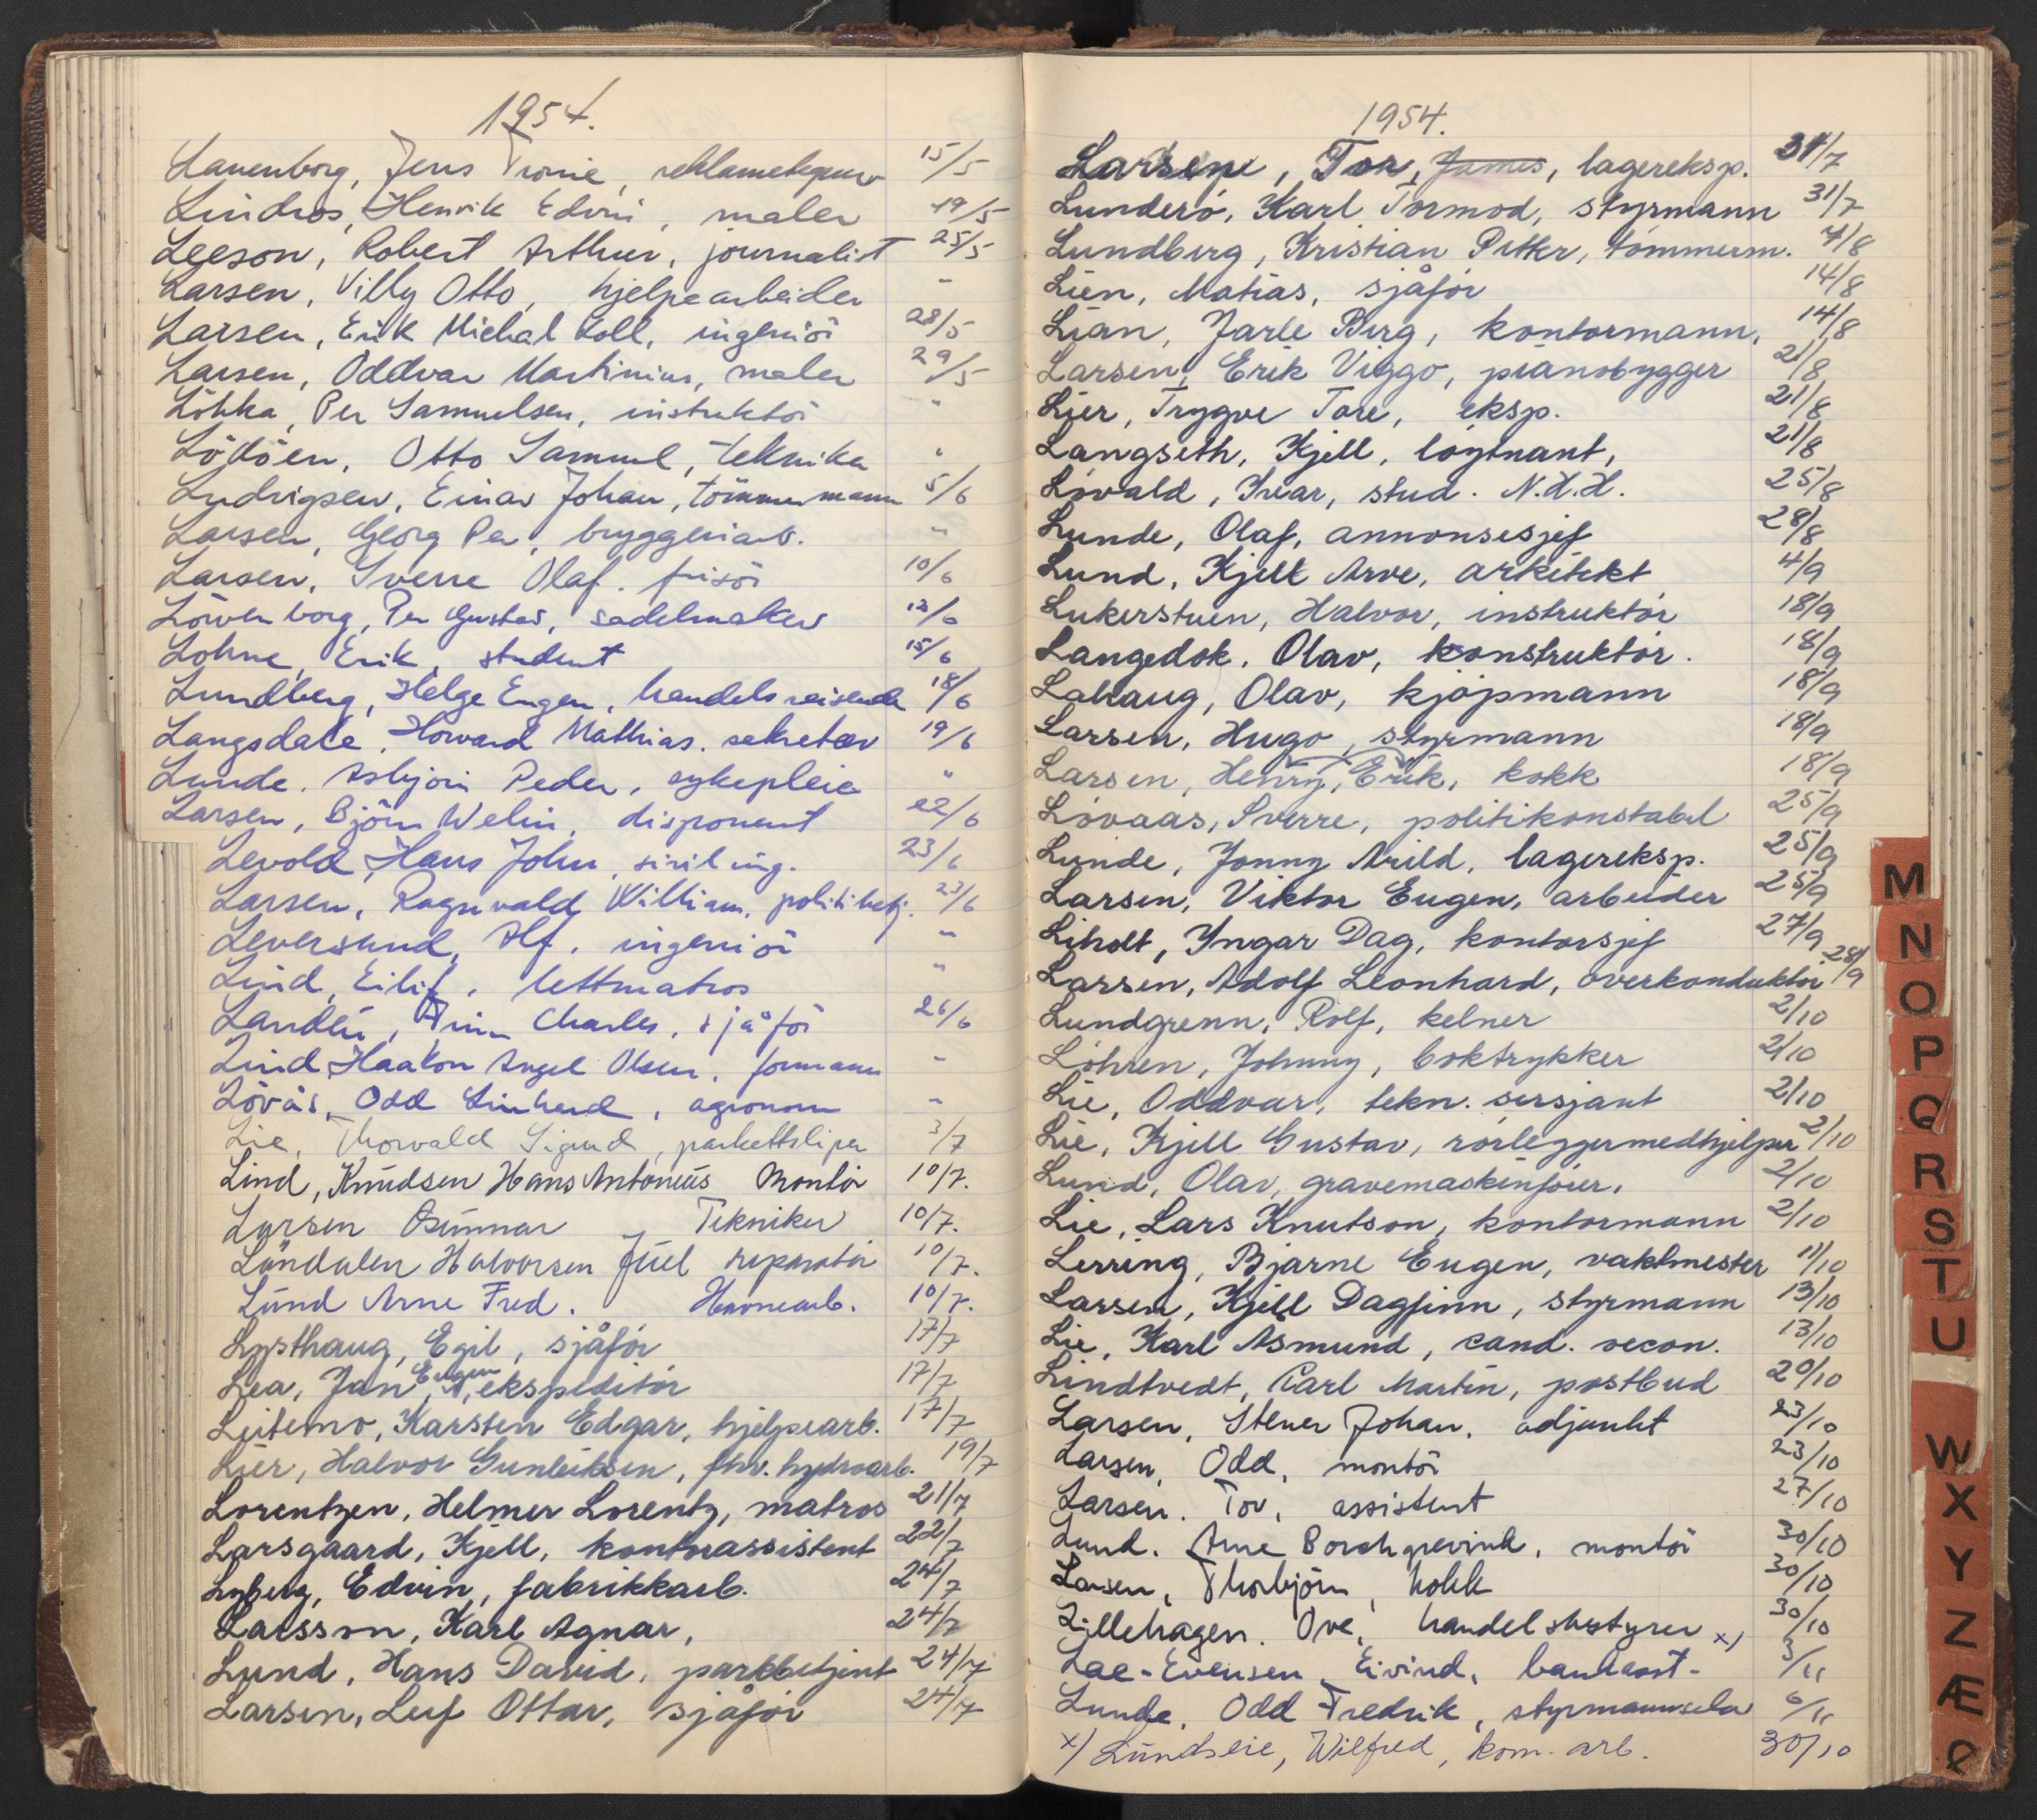 1954.
Lauenborg, Jens Tronie, reklametegner 15/5
Lindros, Henrik Edvin, maler 19/5
Leeson, Robert Arthur, journalist 25/5
Larsen, Villy Otto, hjelpearbeider "
Larsen, Erik Michal Koll, ingeniör 28/5
Larsen, Oddvar Martinius, maler 29/5
Löhka, Per Samuelsen, instruktör "
Lödöen, Otto Samuel, tekniker "
Ludvigsen, Einar Johan, tömmermann 5/6
Larsen, Georg Per, bryggeriarb. "
Larsen, Sverre Olaf, frisör 10/6
Löwenborg, Per Gustav, sadelmaker 12/6
Lohne, Erik, student 15/6
Lundberg, Helge Eugen, handelsreisende 18/6
Langsdale, Howard Mathias, sekretær 19/6
Lunde, Asbjörn Peder, sykepleier "
Larsen, Björn Welin, disponent 22/6
Levold, Hans John, sivil ing. 23/6
Larsen, Ragnvald William, politibetj. 23/6
Leversund, Alf, ingeniör "
Lind, Eilif, lettmatros "
Landén, Finn Charles, sjåför 26/6
Lind Haakon Angel Olsen, formann "
Lövås, Odd Linhard, agronom "
Lie, Thorvald Sigurd, parkettsliper 3/7
Lind, Knudsen Hans Antonius Montör 10/7.
Larsen Gunnar, Tekniker 10/7.
Löndalen Halvorsen Juel reparatör 10/7.
Lund Arne Fred. Havnearb. 10/7.
Lysthaug, Egil, sjåför 17/7
Lea, Jan Eugen, ekspeditör 17/7
Leitemo, Karsten Edgar, hjelpearb. 17/7
Lier, Halvor Gunleiksen, fhv. hydroarb. 19/7
Lorentzen, Helmer Lorentz, matros 21/7
Larsgaard, Kjell, kontorassistent 22/7
Lyberg, Edvin, fabrikkarb. 24/7
Larsson, Karl Agnar, 24/7
Lund, Hans David, parkbetjent 24/7
Larsen, Leif Ottar, sjåför 24/7
1954.
Larsen, Tor, James, lagereksp. 31/7
Lunderö, Karl Tormod, styrmann 31/7
Lundberg, Kristian Petter, tömmerm. 7/8
Lien, Matias, sjåför 14/8
Lian, Jarle Birg, kontormann, 14/8
Larsen, Erik Viggo, pianobygger 21/8
Lier, Trygve Tore, eksp. 21/8
Langseth, Kjell, löytnant, 21/8
Lövald, Ivar, stud. N.H.H. 25/8
Lunde, Olaf, annonsesjef 28/8
Lund, Kjell Arve, arkitekt 4/9
Lukerstuen, Halvor, instruktör 18/9
Langedok, Olav, konstruktör. 18/9
Lahaug, Olav, kjöpmann 18/9
Larsen, Hugo, styrmann 18/9
Larsen, Henry, Erik, kokk 18/9
Lövaas, Sverre, politikonstabel 25/9
Lunde, Jonny Arild, lagereksp. 25/9
Larsen, Viktor Eugen, arbeider 25/9
Liholt, Yngar Dag, kontorsjef 27/9
Larsen, Adolf Leonhard, overkonduktör 28/9
Lundgrenn, Rolf, kelner 2/10
Löhren, Johnny, boktrykker 2/10
Lie, Oddvar, tekn. sersjant 2/10
Lie, Kjell Gustav, rörleggermedhjelper 2/10
Lund, Olav, gravemaskinförer, 2/10
Lie, Lars Knutson, kontormann 2/10
Lerring, Bjarne Eugen, vaktmester 11/10
Larsen, Kjell Dagfinn, styrmann 13/10
Lie, Karl Asmund, cand. oecon. 13/10
Lindtvedt, Carl Martin, postbud 20/10
Larsen, Stener Johan, adjunkt 23/10
Larsen, Odd, montör 23/10
Larsen, Tov, assistent 27/10
Lund, Arne Borchgrevink, montör 30/10
Larsen, Thorbjörn, kokk 30/10
Lillehagen, Ove, handelsbestyrer x) 30/10
Lae-Evensen, Eivind, bankasst. 3/11
Lunde, Odd Fredrik, styrmannselev 6/11
x) Lundseie, Wilfred, kom. arb. 30/10
M
N
O
P
Q
R
S
T
U
W
X
Y
Z
Æ